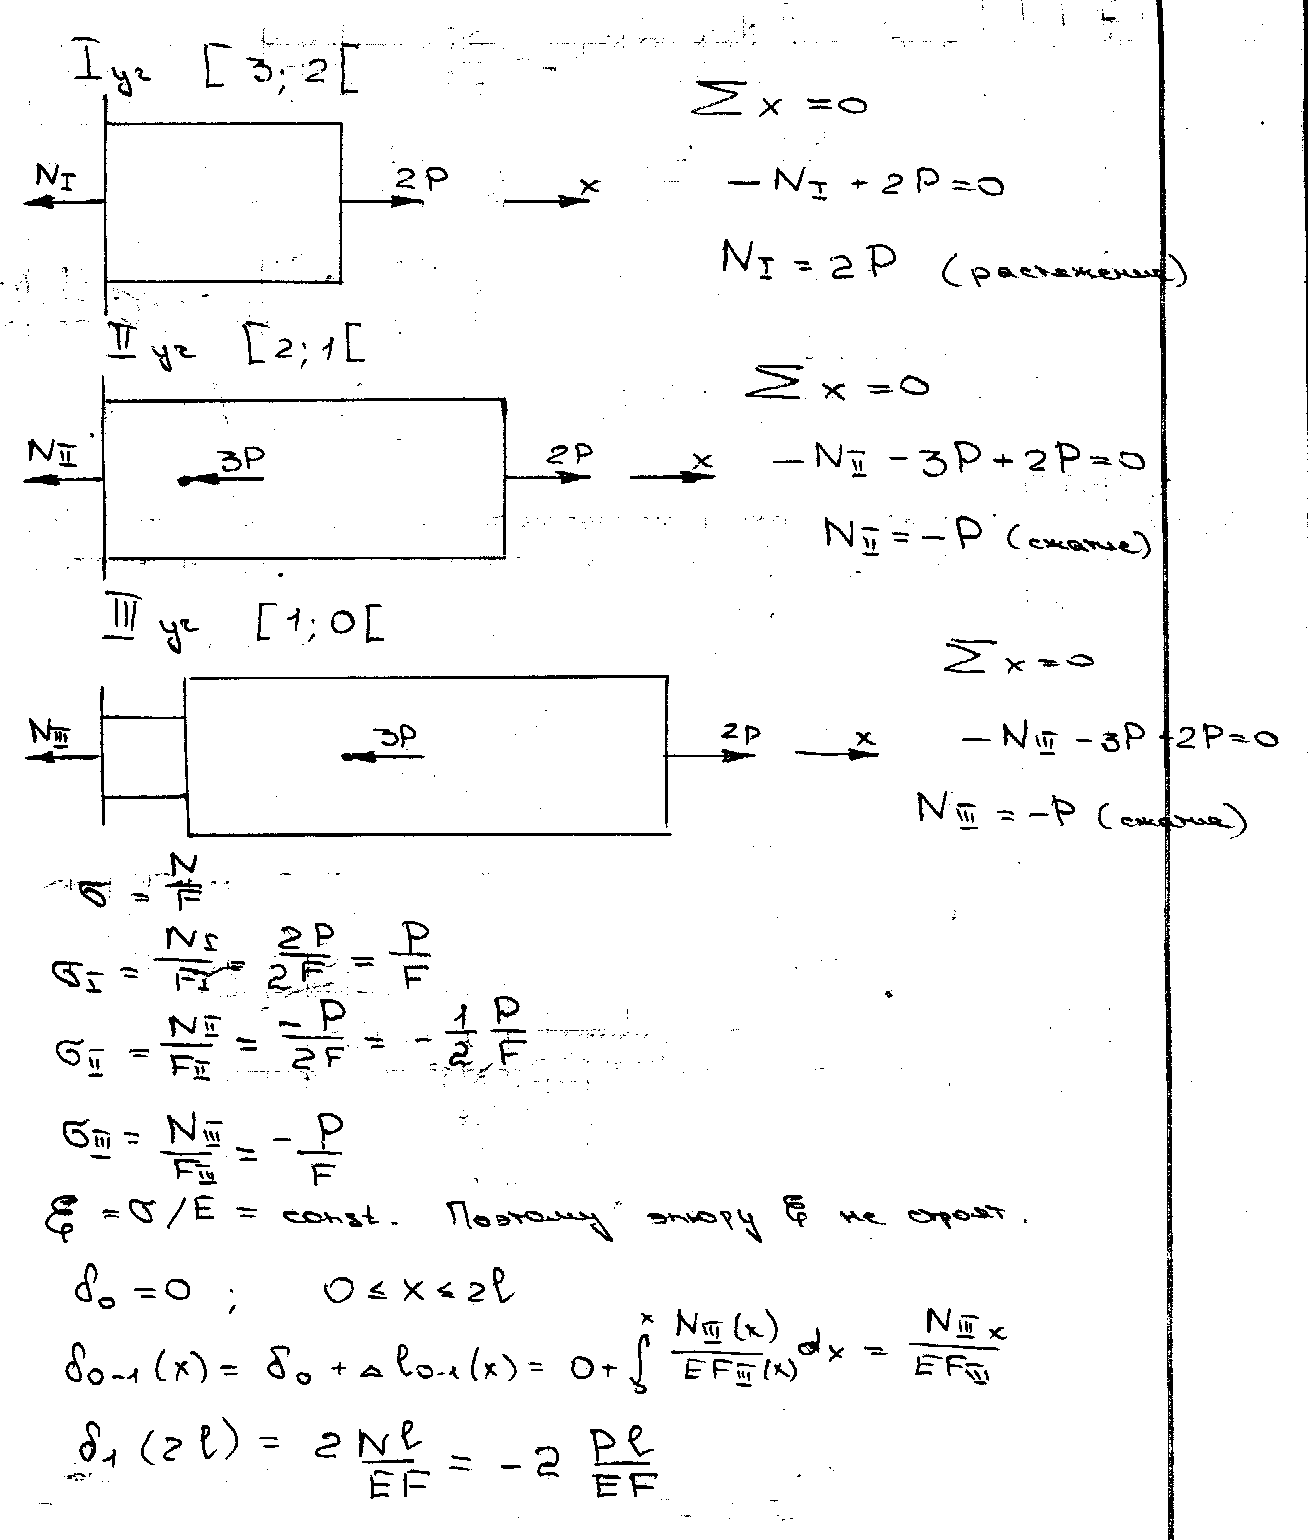 I уч [3; 2[
N_I 2P x
Σ x = 0
- N_I + 2P = 0
N_I = 2P (растяжения)
II уч [2; 1[
N_II 3P 2P x
Σ x = 0
- N_II - 3P + 2P = 0
N_II = - P (сжатие)
III уч [1; 0[
N_III 3P 2P x
Σ x = 0
- N_III - 3P + 2P = 0
N_III = - P (сжатие)
σ = N/F
σ_I = N_I/F_I = 2P/2F = P/F
σ_II = N_II/F_II = -P/2F = - 1/2 P/F
σ_III = N_III/F_III = - P/F
ξ = σ/E = const. Поэтому эпюру ξ не строят.
δ₀ = 0 ; 0 ≤ x ≤ 2l
δ₀₋₁(x) = δ₀ + Δl₀₋₁(x) = 0 + ∫₀ˣ N_III(x)/EF_III(x) dx = N_III x/EF_III
δ₁(2l) = 2 Nl/EF = - 2 Pl/EF